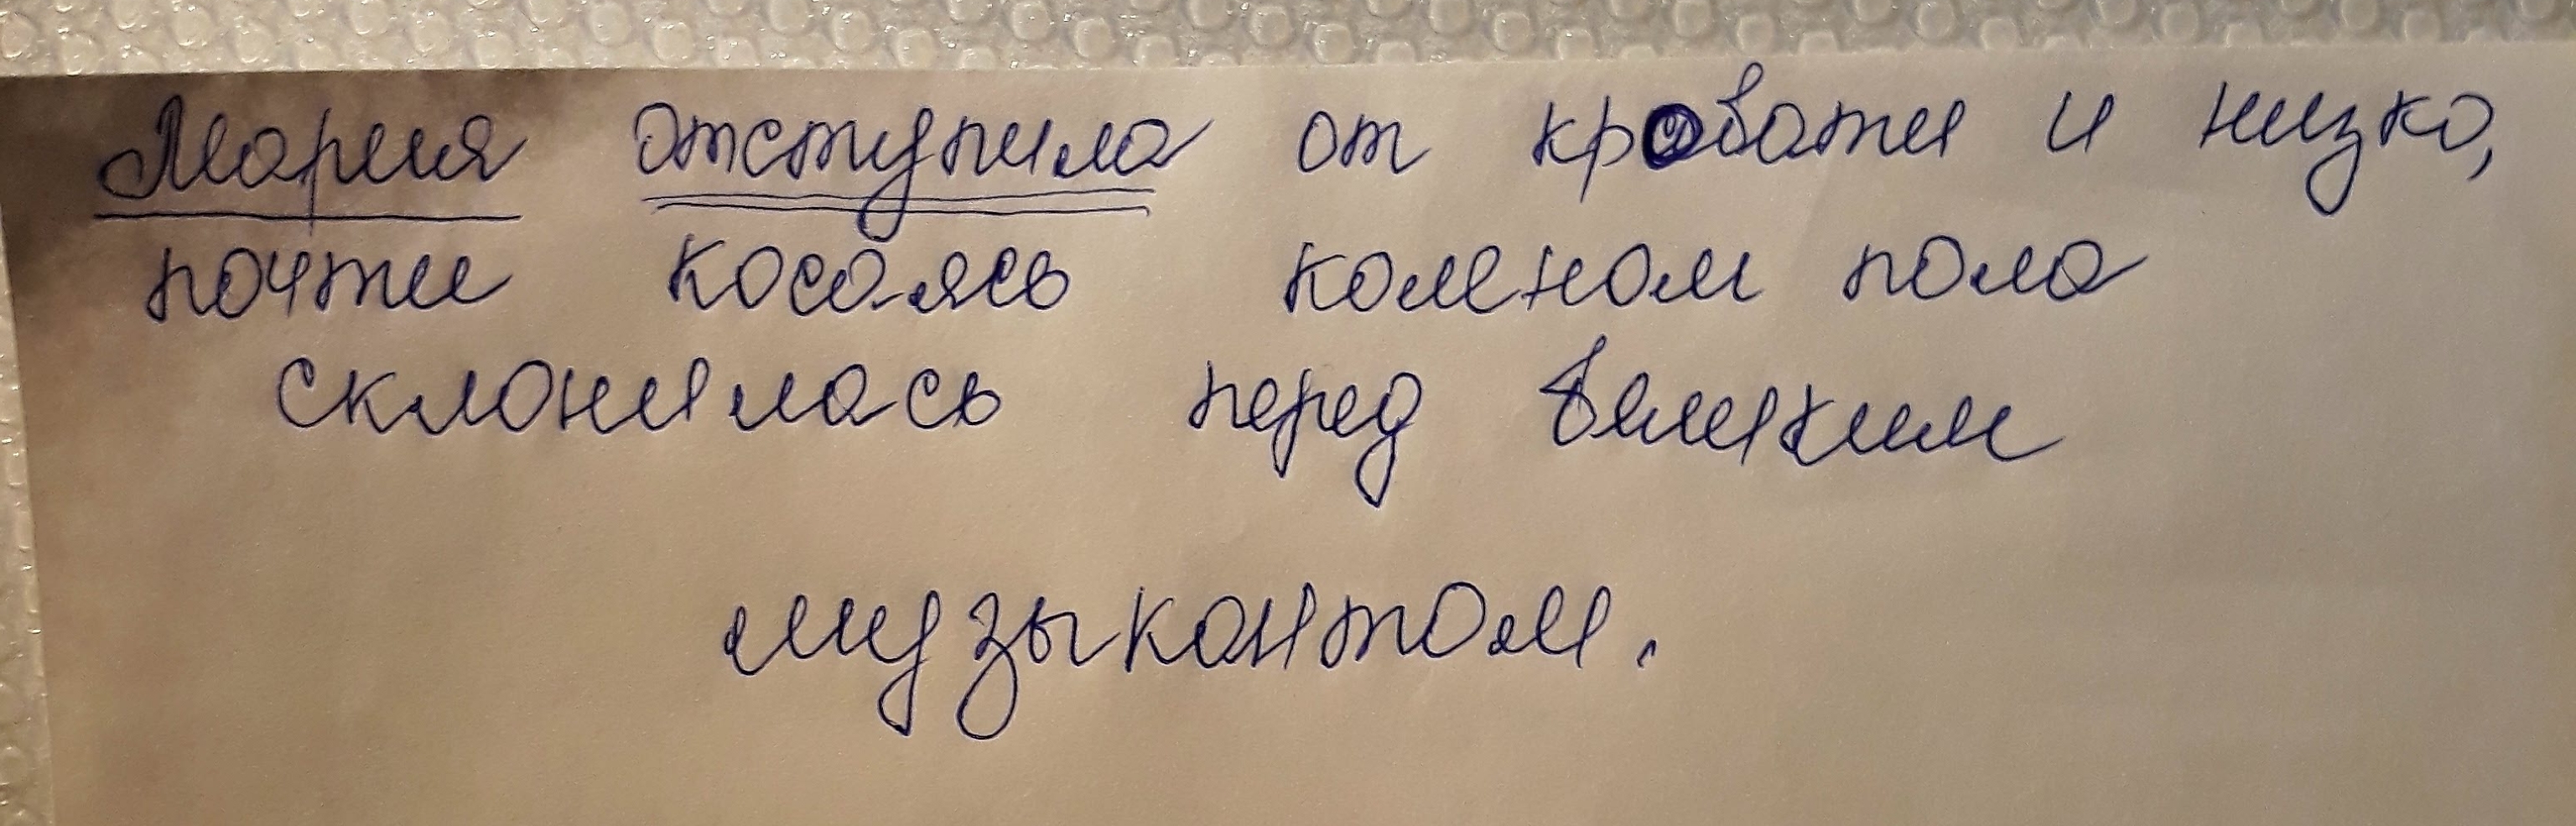 Мария отступила от кровати и низко,
почти касаясь коленом пола
склонилась перед великим
музыкантом.